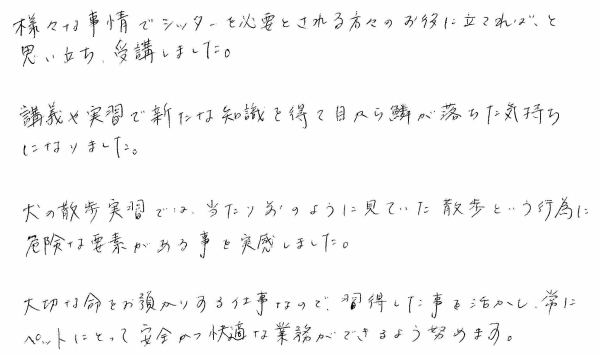 様々な事情でシッターを必要とされる方々のお役に立てれば、と
思い立ち、受講しました。
講義や実習で新たな知識を得て目から鱗が落ちた気持ち
になりました。
犬の散歩実習では、当たり前のように見ていた散歩という行為に
危険な要素がある事を実感しました。
大切な命をお預かりする仕事なので、習得した事を活かし、常に
ペットにとって安全かつ快適な業務ができるよう努めます。